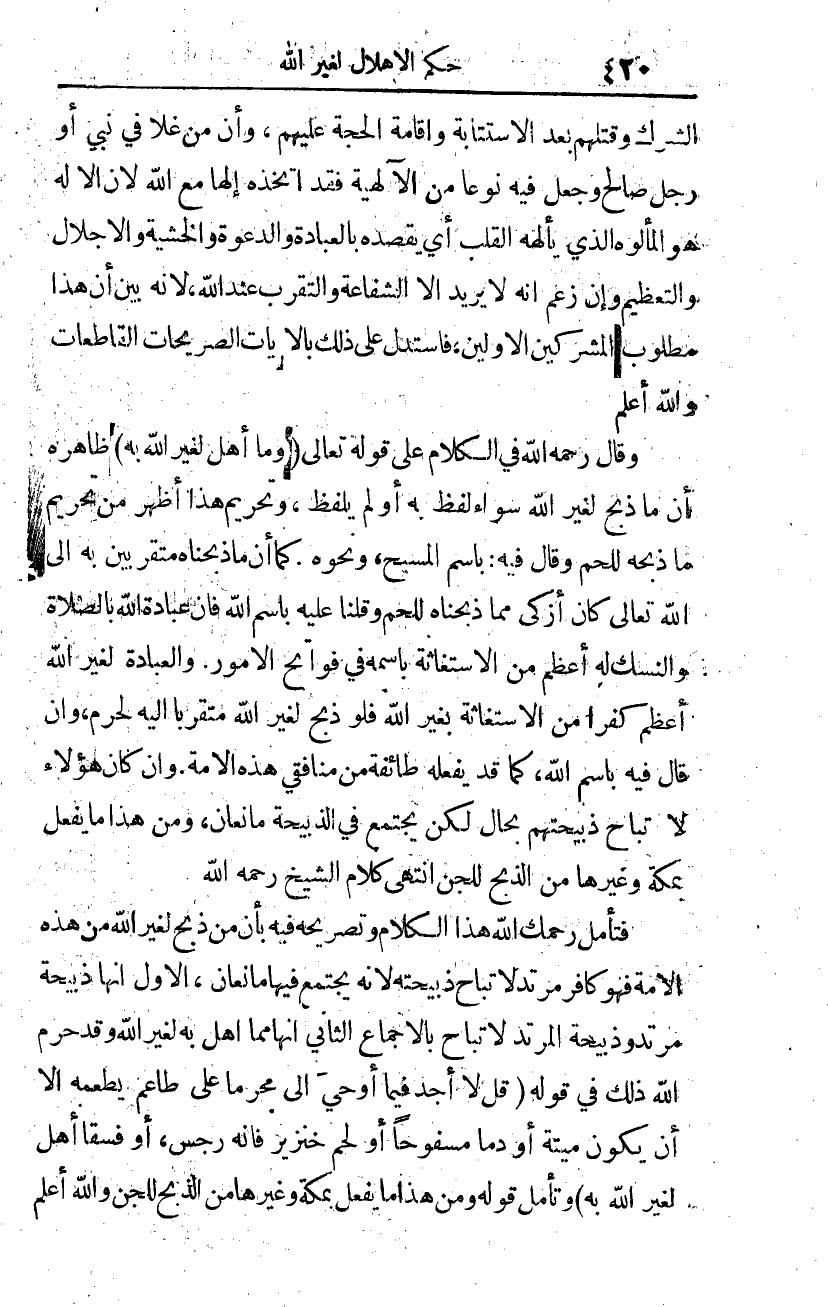 ٤٢٠ حكم الاهلال لغير الله
الشرك وقتلهم بعد الاستتابة واقامة الحجة عليهم ، وأن من غلا في نبي أو
رجل صالح وجعل فيه نوعا من الآلهية فقد اتخذه إلها مع الله لان الاله
هو المألوه الذي يألهه القلب أي يقصده بالعبادة والدعوة والخشية والاجلال
والتعظيم وإن زعم انه لا يريد الا الشفاعة والتقرب عند الله، لانه بين أن هذا
مطلوب المشركين الاولين، فاستدل على ذلك بالايات الصريحات القاطعات
والله أعلم
وقال رحمه الله في الكلام على قوله تعالى (وما أهل لغير الله به) ظاهره
أن ما ذبح لغير الله سواء لفظ به أو لم يلفظ ، وتحريم هذا أظهر من تحريم
ما ذبحه للحم وقال فيه: باسم المسيح، ونحوه . كما أن ما ذبحناه متقربين به الى
الله تعالى كان أزكى مما ذبحناه للحم وقلنا عليه باسم الله فان عبادة الله بالصلاة
والنسك له أعظم من الاستغاثة باسمه في فواتح الامور. والعبادة لغير الله
أعظم كفرا من الاستغاثة بغير الله فلو ذبح لغير الله متقربا اليه لحرم، وان
قال فيه باسم الله، كما قد يفعله طائفة من منافقي هذه الامة. وان كان هؤلاء
لا تباح ذبيحتهم بحال لكن يجتمع في الذبيحة مانعان، ومن هذا ما يفعل
بمكة وغيرها من الذبح للجن انتهى كلام الشيخ رحمه الله
فتأمل رحمك الله هذا الكلام وتصريحه فيه بأن من ذبح لغير الله من هذه
الامة فهو كافر مرتد لا تباح ذبيحته لانه يجتمع فيها مانعان ، الاول انها ذبيحة
مرتد وذبيحة المرتد لا تباح بالاجماع الثاني انها مما اهل به لغير الله وقد حرم
الله ذلك في قوله ( قل لا أجد فيما أوحي الى محرما على طاعم يطعمه الا
أن يكون ميتة أو دما مسفوحاً أو لحم خنزير فانه رجس، أو فسقا أهل
لغير الله به) وتأمل قوله ومن هذا ما يفعل بمكة وغيرها من الذبح للجن والله أعلم